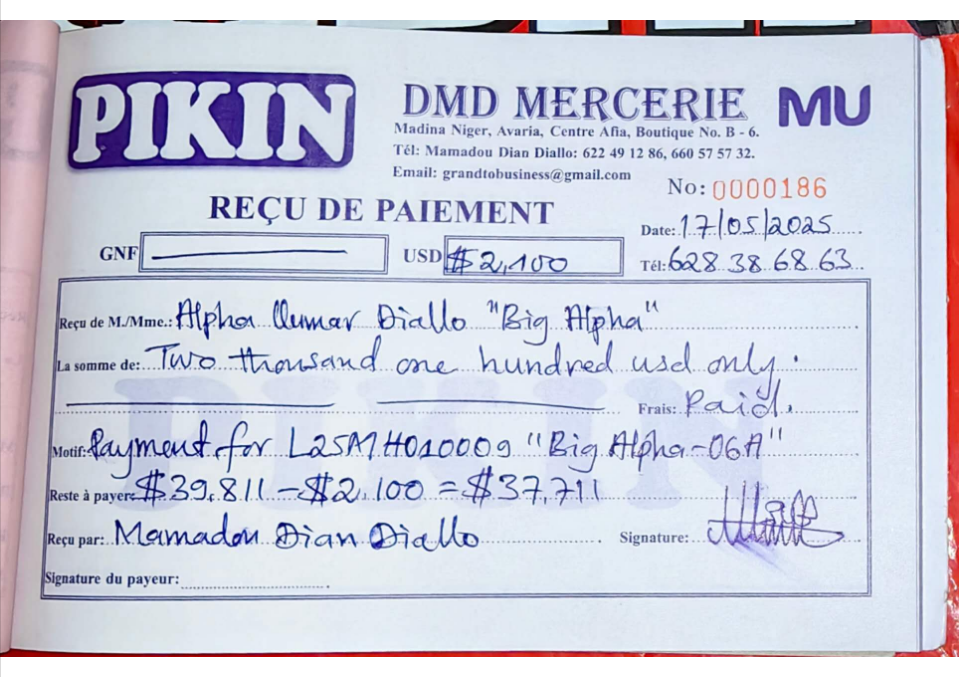 PIKIN
DMD MERCERIE MU
Madina Niger, Avaria, Centre Afia, Boutique No. B - 6.
Tél: Mamadou Dian Diallo: 622 49 12 86, 660 57 57 32.
Email: grandtobusiness@gmail.com
No: 0000186
REÇU DE PAIEMENT
Date: 17/05/2025
GNF USD $2,100
Tél: 628 38 68 63
Reçu de M./Mme.: Alpha Oumar Diallo "Big Alpha"
La somme de: Two thousand one hundred usd only.
Frais: Paid.
Motif: Payment for L25MH010009 "Big Alpha-06A"
Reste à payer: $39,811 - $2,100 = $37,711
Reçu par: Mamadou Dian Diallo Signature:
Signature du payeur: